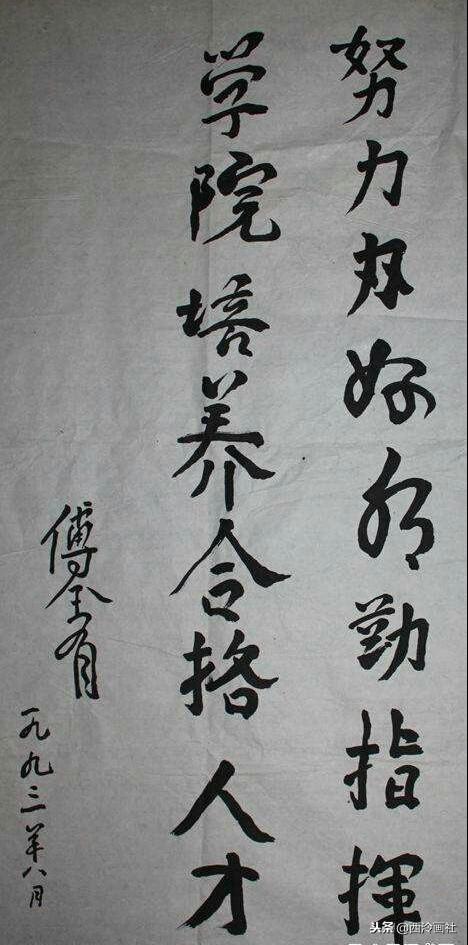 努力办好后勤指挥
学院培养合格人才
傅全有
一九九三年八月
头条 @西泠画社